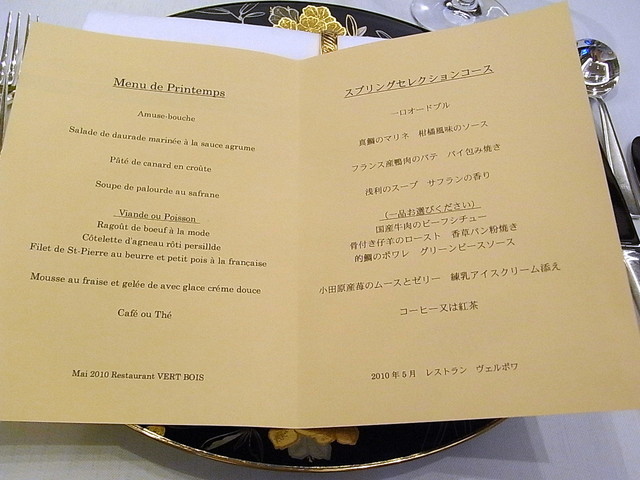 Menu de Printemps
Amuse-bouche
Salade de daurade marinée à la sauce agrume
Pâté de canard en croûte
Soupe de palourde au safrane
Viande ou Poisson
Ragoût de boeuf à la mode
Côtelette d'agneau rôti persillde
Filet de St-Pierre au beurre et petit pois à la française
Mousse au fraise et gelée de avec glace créme douce
Café ou Thé
Mai 2010 Restaurant VERT BOIS
スプリングセレクションコース
一口オードブル
真鯛のマリネ 柑橘風味のソース
フランス産鴨肉のパテ パイ包み焼き
浅利のスープ サフランの香り
(一品お選びください)
国産牛肉のビーフシチュー
骨付き仔羊のロースト 香草パン粉焼き
的鯛のポワレ グリーンピースソース
小田原産苺のムースとゼリー 練乳アイスクリーム添え
コーヒー又は紅茶
2010年5月 レストラン ヴェルボワ